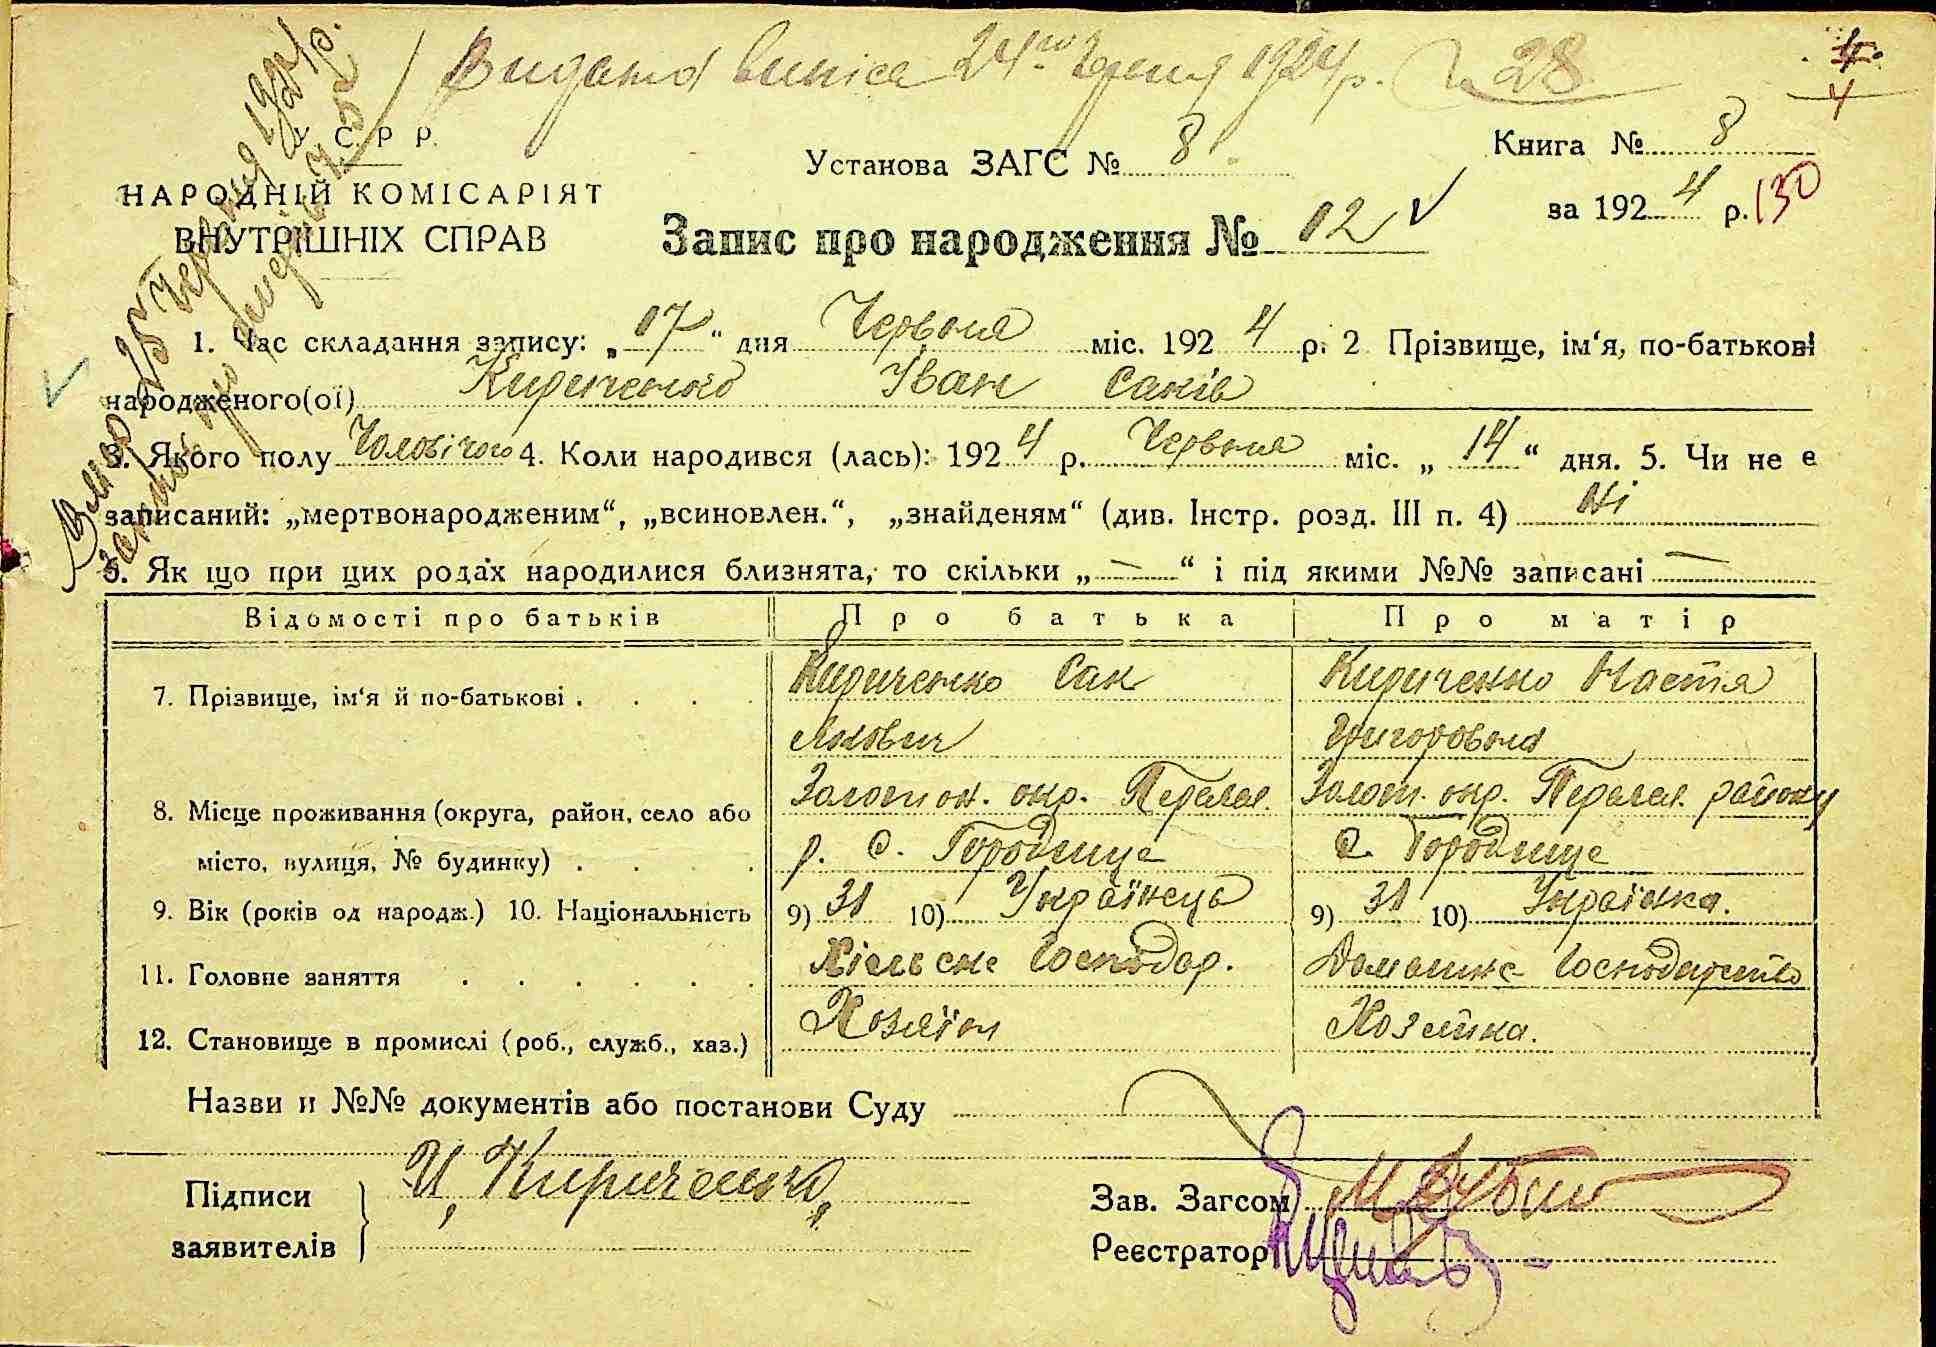 Видано 24го 1924 р. 28
4
4
С. Р Р.
Установа ЗАГС № 8
Книга № 8
НАРОДНІЙ КОМІСАРІЯТ
за 1924 р. 130
ВНУТРІШНІХ СПРАВ
Запис про народження № 12
Вмер 25 Червня 1924 р.
1. Час складання запису: „17“ дня Червня міс. 1924 р. 2 Прізвище, ім‘я, по-батькові
народженого(ої) Кириченко Іван Саків
3. Якого полу Чоловічого 4. Коли народився (лась): 1924 р. Червня міс. „14“ дня. 5. Чи не є
записаний: „мертвонародженим“, „всиновлен.“, „знайденям“ (див. Інстр. розд. III п. 4) Ні
6. Як що при цих родах народилися близнята, то скільки „—“ і під якими №№ записані —
Відомості про батьків Про батька Про матір
7. Прізвище, ім‘я й по-батькові . . . . Кириченко Сак Кириченко Настя
Якович Григоровна
8. Місце проживання (округа, район, село або Золотон. окр. Переял. Золот. окр. Переял. району
місто, вулиця, № будинку) . . . . р. с. Городище с. Городище
9. Вік (років од народж.) 10. Національність 9) 31 10) Українець 9) 31 10) Українка.
11. Головне заняття . . . . . . Хісльске Господар. Домашнє Господарство
12. Становище в промислі (роб., служб., хаз.) Хозяїн Хозяйка.
Назви и №№ документів або постанови Суду
Підписи
заявителів
Кириченко
Зав. Загсом
Реєстратор